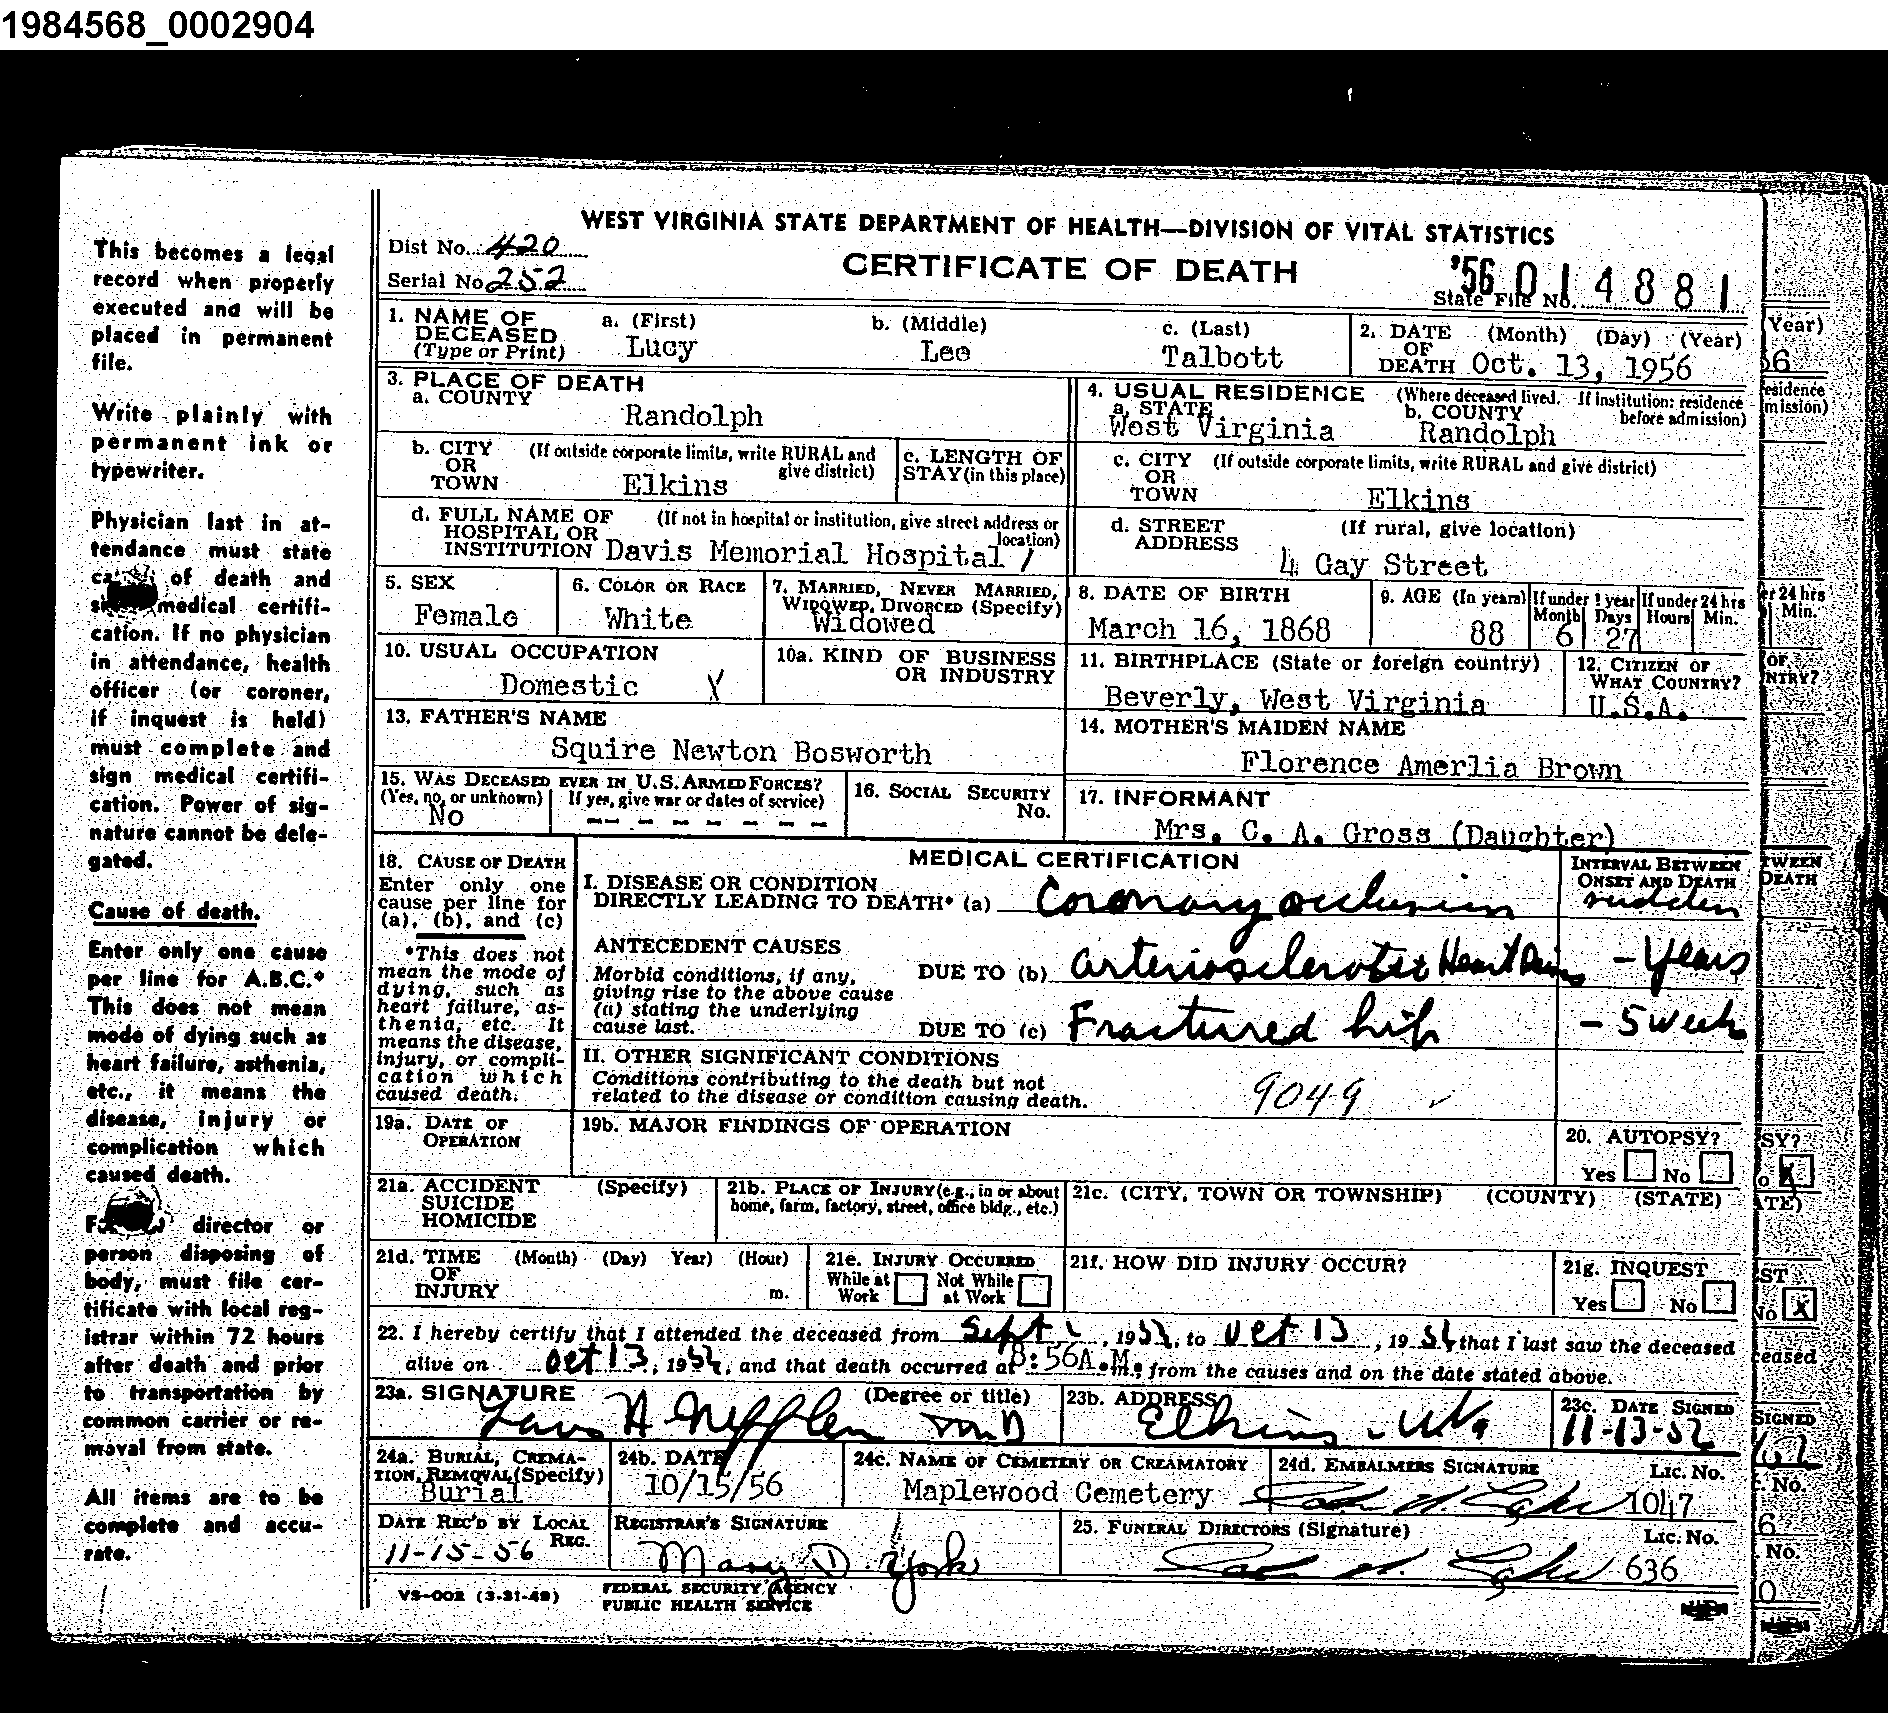 1984568_0002904
This becomes a legal
record when properly
executed and will be
placed in permanent
file.
Write plainly with
permanent ink or
typewriter.
Physician last in at-
tendance must state
of death and
medical certifi-
cation. If no physician
in attendance, health
officer (or coroner,
if inquest is held)
must complete and
sign medical certifi-
cation. Power of sig-
nature cannot be dele-
gated.
Cause of death.
Enter only one cause
per line for A.B.C.*
This does not mean
mode of dying such as
heart failure, asthenia,
etc., it means the
disease, injury or
complication which
caused death.
director or
person disposing of
body, must file cer-
tificate with local reg-
istrar within 72 hours
after death and prior
to transportation by
common carrier or re-
moval from state.
All items are to be
complete and accu-
rate.
WEST VIRGINIA STATE DEPARTMENT OF HEALTH—DIVISION OF VITAL STATISTICS
Dist No. 420
Serial No 252
CERTIFICATE OF DEATH
'56 014881
State File No.
1. NAME OF DECEASED (Type or Print)
a. (First) Lucy
b. (Middle) Lee
c. (Last) Talbott
2. DATE OF DEATH (Month) (Day) (Year)
Oct. 13, 1956
3. PLACE OF DEATH
a. COUNTY
Randolph
4. USUAL RESIDENCE (Where deceased lived. If institution: residence before admission)
a. STATE West Virginia
b. COUNTY Randolph
b. CITY OR TOWN (If outside corporate limits, write RURAL and give district)
Elkins
c. LENGTH OF STAY (in this place)
c. CITY OR TOWN (If outside corporate limits, write RURAL and give district)
Elkins
d. FULL NAME OF HOSPITAL OR INSTITUTION (If not in hospital or institution, give street address or location)
Davis Memorial Hospital /
d. STREET ADDRESS (If rural, give location)
4 Gay Street
5. SEX
Female
6. COLOR OR RACE
White
7. MARRIED, NEVER MARRIED, WIDOWED, DIVORCED (Specify)
Widowed
8. DATE OF BIRTH
March 16, 1868
9. AGE (In years)
88
If under 1 year
Month Days
6 27
If under 24 hrs
Hours Min.
10. USUAL OCCUPATION
Domestic X
10a. KIND OF BUSINESS OR INDUSTRY
11. BIRTHPLACE (State or foreign country)
Beverly, West Virginia
12. CITIZEN OF WHAT COUNTRY?
U.S.A.
13. FATHER'S NAME
Squire Newton Bosworth
14. MOTHER'S MAIDEN NAME
Florence Amerlia Brown
15. WAS DECEASED EVER IN U.S. ARMED FORCES?
(Yes, no, or unknown) If yes, give war or dates of service)
No - - - - - - -
16. SOCIAL SECURITY No.
17. INFORMANT
Mrs. C. A. Gross (Daughter)
18. CAUSE OF DEATH
Enter only one
cause per line for
(a), (b), and (c)
*This does not
mean the mode of
dying, such as
heart failure, as-
thenia, etc. It
means the disease,
injury, or compli-
cation which
caused death.
MEDICAL CERTIFICATION
INTERVAL BETWEEN ONSET AND DEATH
I. DISEASE OR CONDITION
DIRECTLY LEADING TO DEATH* (a) Coronary occlusion sudden
ANTECEDENT CAUSES
Morbid conditions, if any,
giving rise to the above cause
(a) stating the underlying
cause last.
DUE TO (b) Arteriosclerotic Heart Dis - Years
DUE TO (c) Fractured hip - 5 weeks
II. OTHER SIGNIFICANT CONDITIONS
Conditions contributing to the death but not
related to the disease or condition causing death.
9049
19a. DATE OF OPERATION
19b. MAJOR FINDINGS OF OPERATION
20. AUTOPSY?
Yes No
21a. ACCIDENT SUICIDE HOMICIDE (Specify)
21b. PLACE OF INJURY (e.g., in or about home, farm, factory, street, office bldg., etc.)
21c. (CITY, TOWN OR TOWNSHIP) (COUNTY) (STATE)
21d. TIME OF INJURY (Month) (Day) Year) (Hour) m.
21e. INJURY OCCURRED
While at Work Not While at Work
21f. HOW DID INJURY OCCUR?
21g. INQUEST
Yes No
22. I hereby certify that I attended the deceased from Sept , 19 , to Oct 13 , 19 that I last saw the deceased
alive on Oct 13, 19 , and that death occurred at 8:56A.M. m., from the causes and on the date stated above.
23a. SIGNATURE (Degree or title)
MD
23b. ADDRESS
Elkins, W.Va
23c. DATE SIGNED
11-13-52
24a. BURIAL, CREMA-
TION, REMOVAL (Specify)
Burial
24b. DATE
10/15/56
24c. NAME OF CEMETERY OR CREAMATORY
Maplewood Cemetery
24d. EMBALMERS SIGNATURE LIC. NO.
1047
DATE REC'D BY LOCAL REG.
11-15-56
REGISTRAR'S SIGNATURE
Mary D. York
25. FUNERAL DIRECTORS (Signature) LIC. NO.
636
VS-002 (3-31-49)
FEDERAL SECURITY AGENCY
PUBLIC HEALTH SERVICE